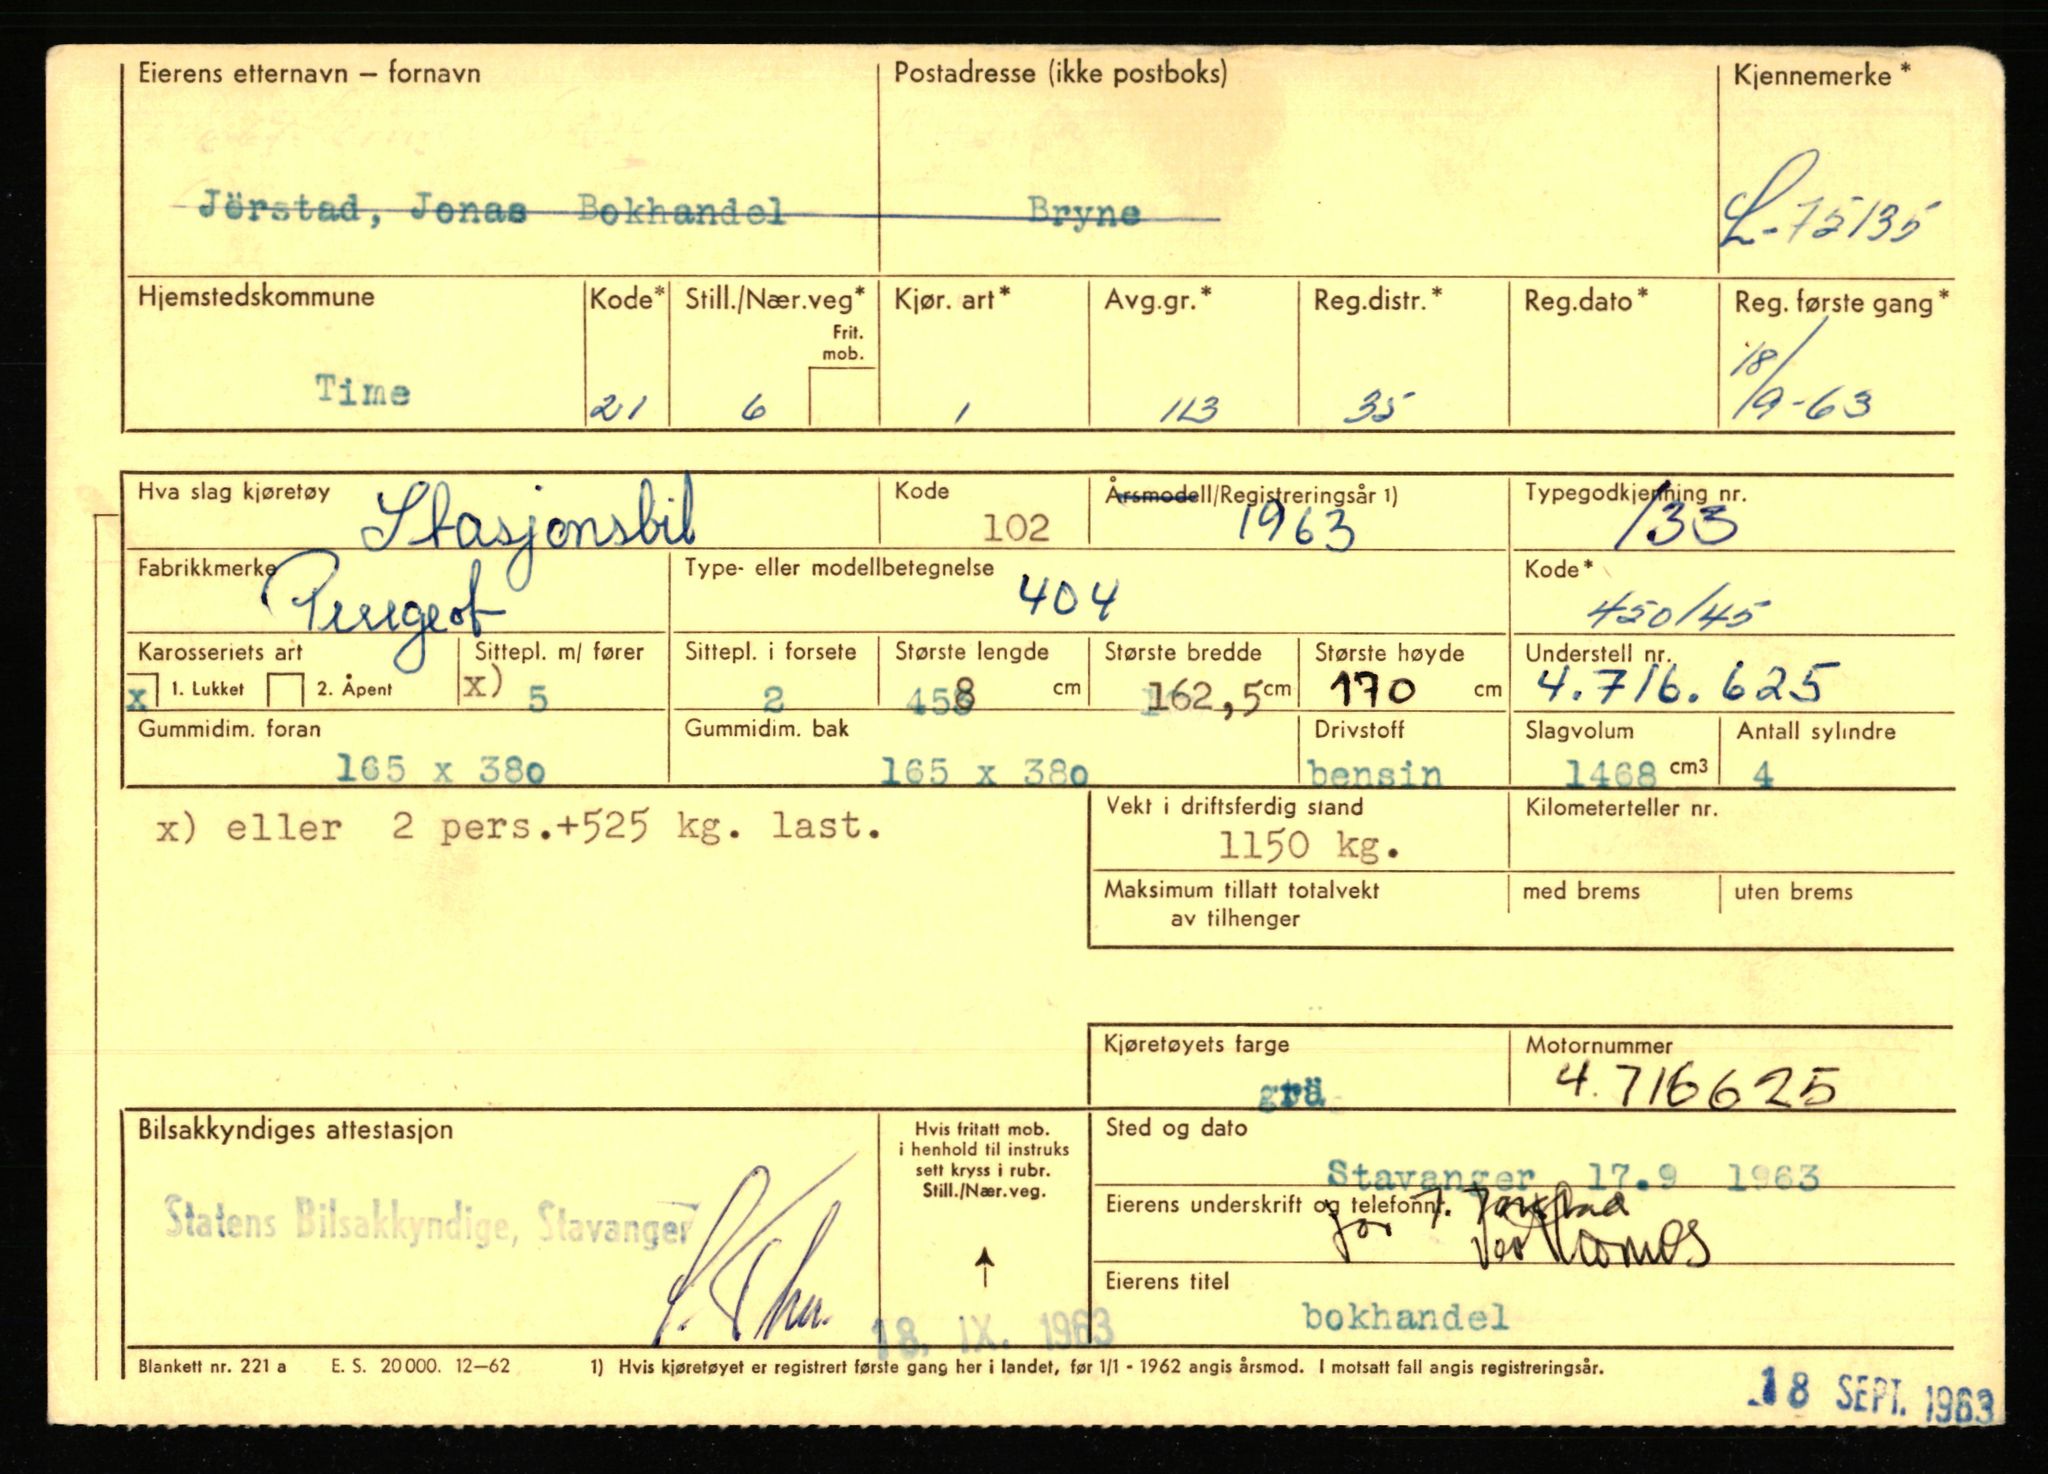 Eierens etternavn – fornavn
Postadresse (ikke postboks)
Kjennemerke *
Jörstad, Jonas Bokhandel
Bryne
L-75135
Hjemstedskommune
Kode*
Still./Nær.veg*
Frit. mob.
Kjør. art*
Avg.gr.*
Reg.distr.*
Reg.dato*
Reg. første gang*
Time
21
6
1
113
35
18/9-63
Hva slag kjøretøy
Stasjonsbil
Kode
102
Årsmodell/Registreringsår 1)
1963
Typegodkjenning nr.
133
Fabrikkmerke
Peugeot
Type- eller modellbetegnelse
404
Kode*
450/45
Karosseriets art
x 1. Lukket 2. Åpent
Sittepl. m/ fører
x) 5
Sittepl. i forsete
2
Største lengde
458 cm
Største bredde
162,5 cm
Største høyde
170 cm
Understell nr.
4.716.625
Gummidim. foran
165 x 380
Gummidim. bak
165 x 380
Drivstoff
bensin
Slagvolum
1468 cm3
Antall sylindre
4
x) eller 2 pers.+525 kg. last.
Vekt i driftsferdig stand
1150 kg.
Kilometerteller nr.
Maksimum tillatt totalvekt
av tilhenger
med brems
uten brems
Kjøretøyets farge
grä
Motornummer
4.716625
Bilsakkyndiges attestasjon
Statens Bilsakkyndige, Stavanger
Hvis fritatt mob.
i henhold til instruks
sett kryss i rubr.
Still./Nær.veg.
18. IX. 1963
Sted og dato
Stavanger 17.9 1963
Eierens underskrift og telefonnr.
for J. Jørstad
Eierens titel
bokhandel
Blankett nr. 221 a E. S. 20000. 12–62 1) Hvis kjøretøyet er registrert første gang her i landet, før 1/1 - 1962 angis årsmod. I motsatt fall angis registreringsår.
18 SEPT. 1963